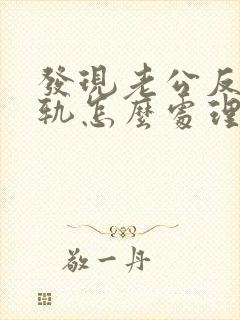 發現老公反
軌怎麼處理
敬一丹